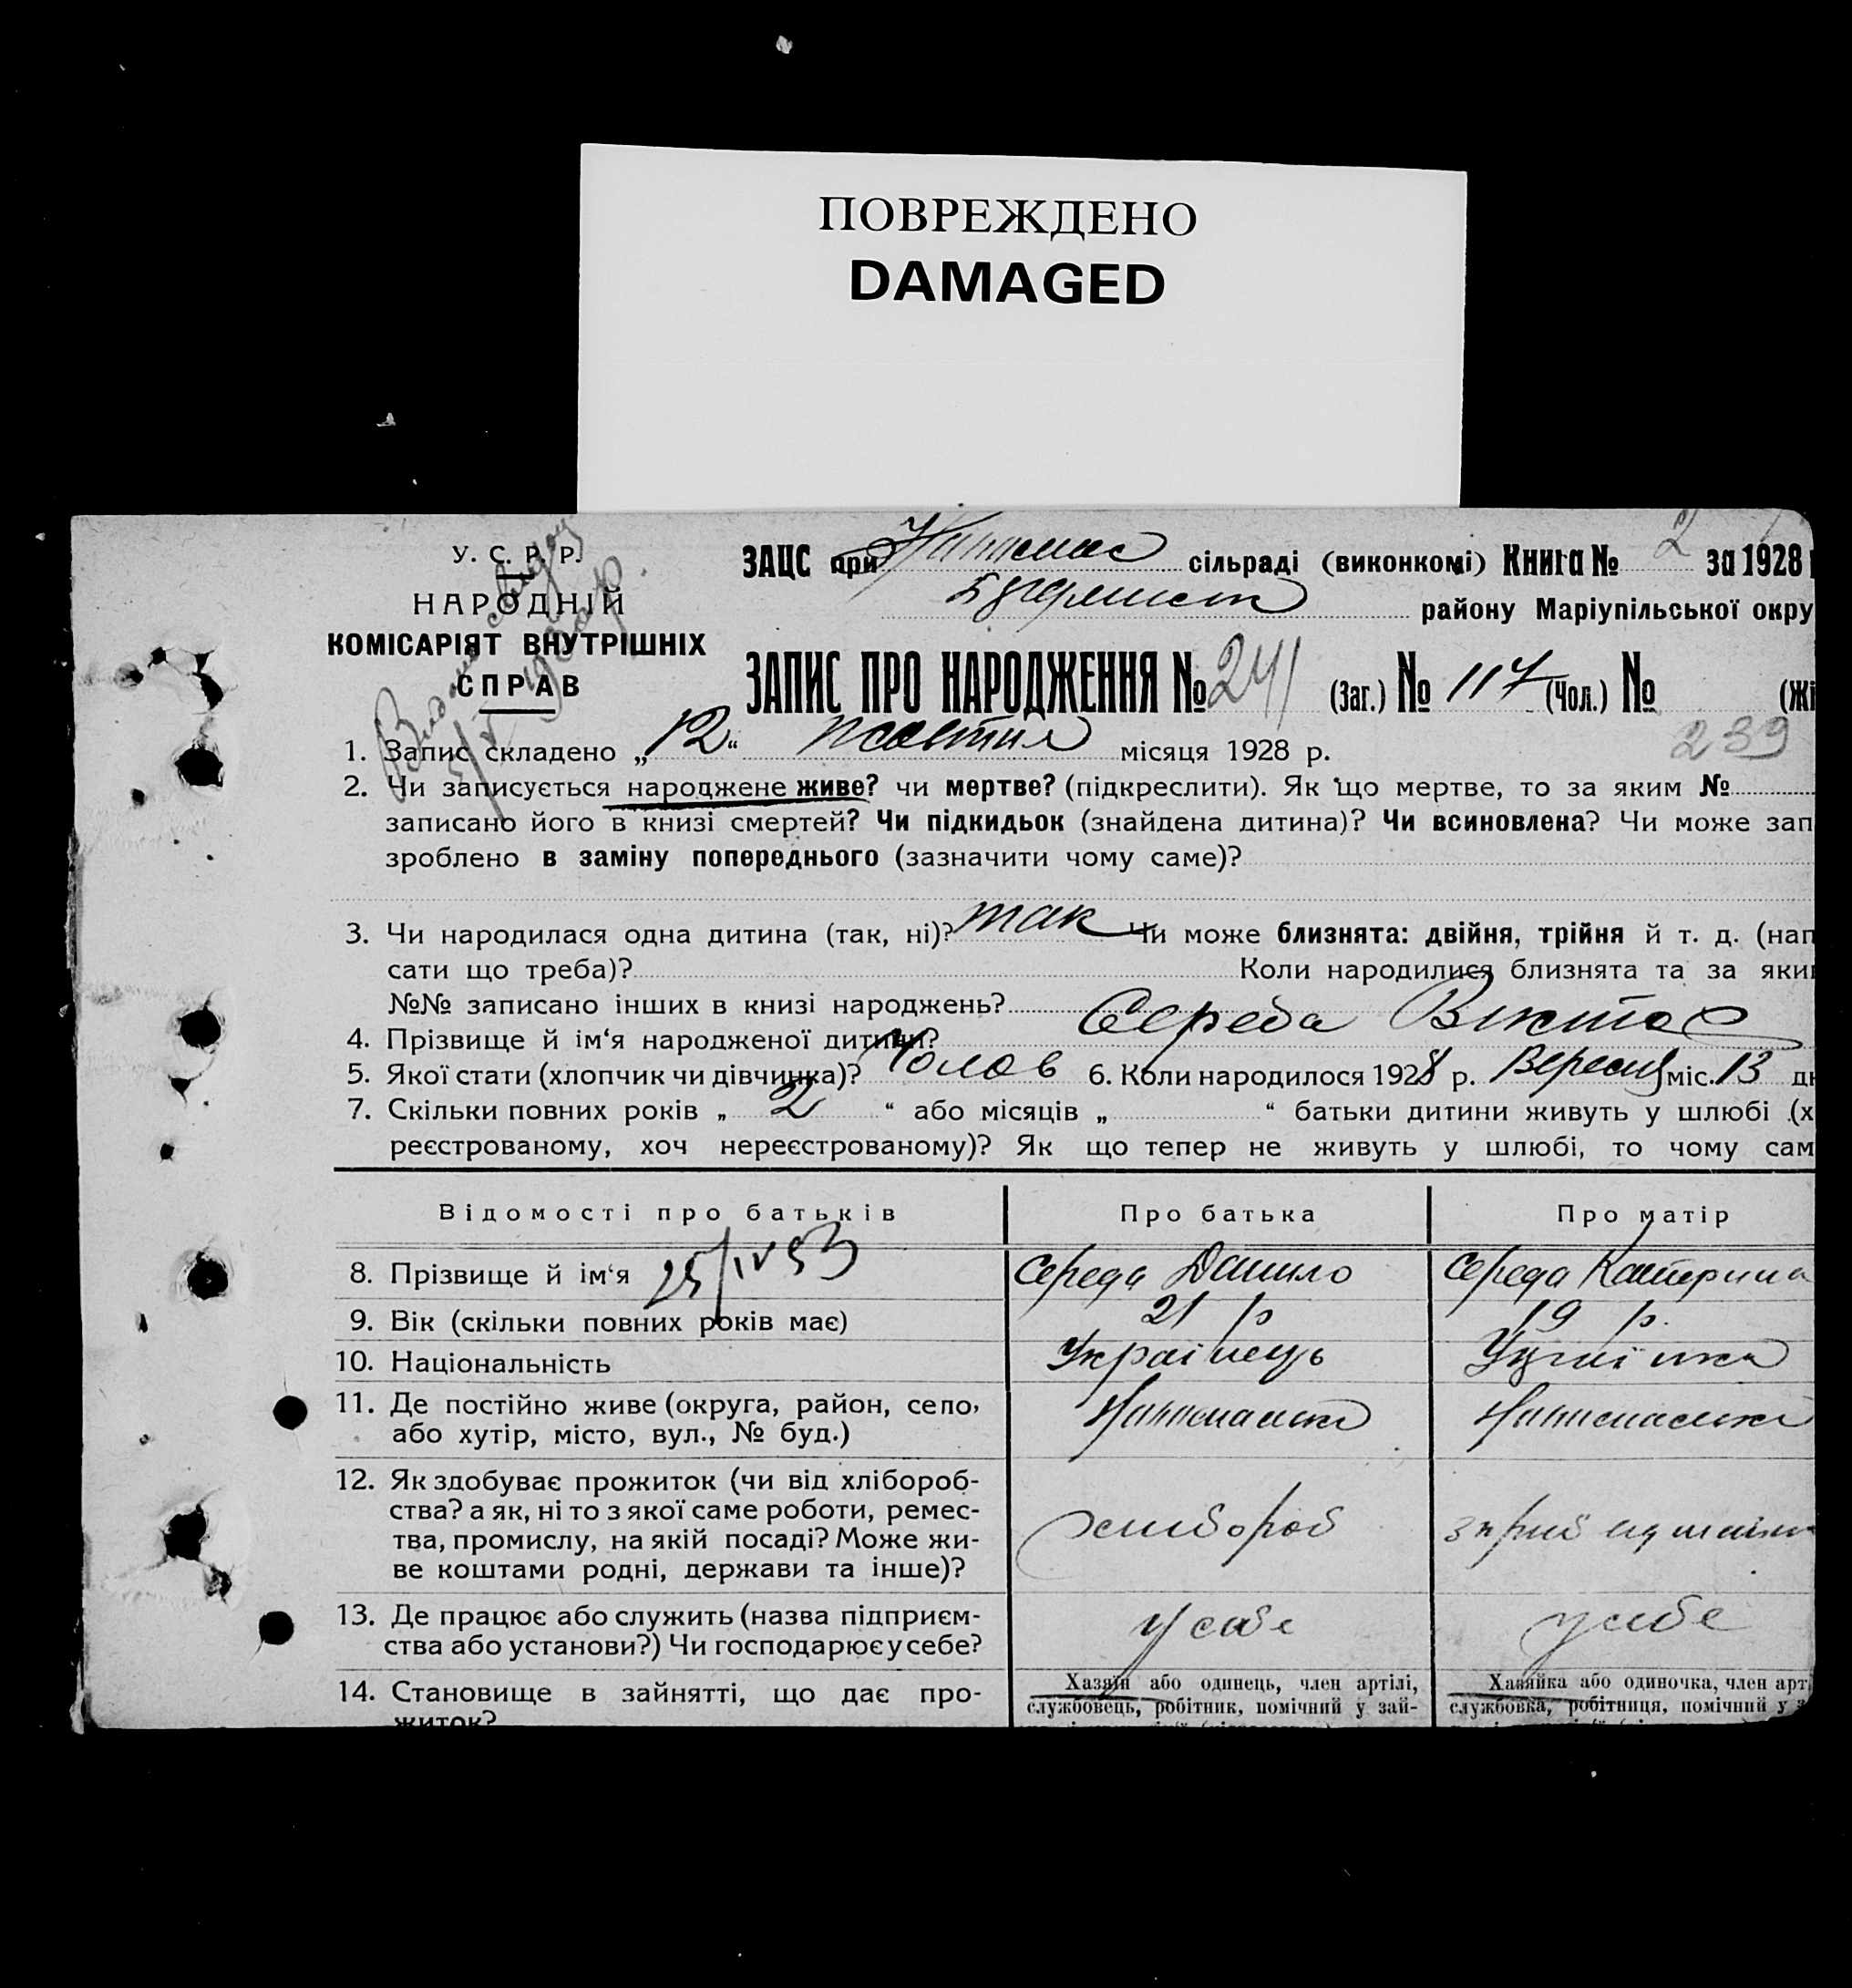 ПОВРЕЖДЕНО
DAMAGED
У. С. Р. Р.
НАРОДНІЙ
КОМІСАРІЯТ ВНУТРІШНІХ
СПРАВ
ЗАЦС при сільраді (виконкомі) Книга № 2 за 1928
району Маріупільської окру
ЗАПИС ПРО НАРОДЖЕННЯ № 241 (Заг.) № 117 (Чол.) № (Жі
239
1. Запис складено „12“ жовтня місяця 1928 р.
2. Чи записується народжене живе? чи мертве? (підкреслити). Як що мертве, то за яким №
записано його в книзі смертей? Чи підкидьок (знайдена дитина)? Чи всиновлена? Чи може зап
зроблено в заміну попереднього (зазначити чому саме)?
3. Чи народилася одна дитина (так, ні)? так Чи може близнята: двійня, трійня й т. д. (нап
сати що треба)? Коли народилися близнята та за яки
№№ записано інших в книзі народжень?
4. Прізвище й ім‘я народженої дитини? Середа Віктор
5. Якої стати (хлопчик чи дівчинка)? Чолов 6. Коли народилося 1928 р. Вересня міс. 13 дн
7. Скільки повних років „ 2 “ або місяців „ “ батьки дитини живуть у шлюбі (х
реєстрованому, хоч нереєстрованому)? Як що тепер не живуть у шлюбі, то чому сам
Відомості про батьків Про батька Про матір
8. Прізвище й ім‘я 25/IV 53 Середа Данило Середа Катерина
9. Вік (скільки повних років має) 21 р 19 р.
10. Національність Українець
11. Де постійно живе (округа, район, село,
або хутір, місто, вул., № буд.)
12. Як здобуває прожиток (чи від хлібороб-
ства? а як, ні то з якої саме роботи, ремес-
тва, промислу, на якій посаді? Може жи-
ве коштами родні, держави та інше)?
хлібороб
13. Де працює або служить (назва підприєм-
ства або установи?) Чи господарює у себе?
у себе у себе
14. Становище в зайнятті, що дає про-
житок?
Хазяїн або одинець, член артілі,
службовець, робітник, помічний у зай-
Хазяйка або одиночка, член арт
службовка, робітниця, помічний у з